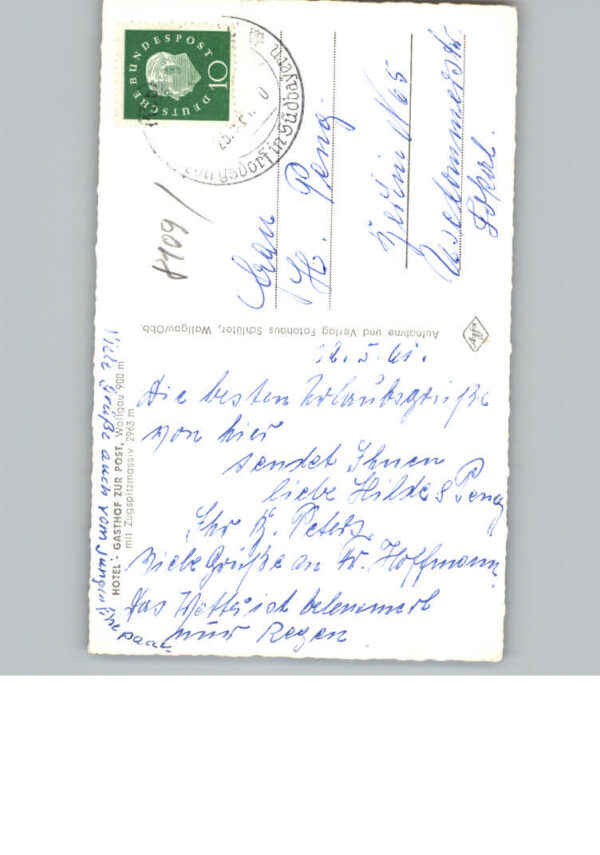 DEUTSCHE BUNDESPOST
10
dorf in Südbayern
8109 /
Frau
H. Penz
Berlin N 65
Lokal.
Aufnahme und Verlag Fotohaus Schlüter, Wallgau/Obb.
HOTEL - GASTHOF ZUR POST, Wallgau 900 m
mit Zugspitzmassiv 2963 m
22.5.61.
Die besten Urlaubsgrüße
von hier
sendet Ihnen
liebe Hilde &
Ihr
Viele Grüße an Hoffmann
Das Wetter ist
nur Regen.
Viele Grüße auch vom jungen Ehe
paar.